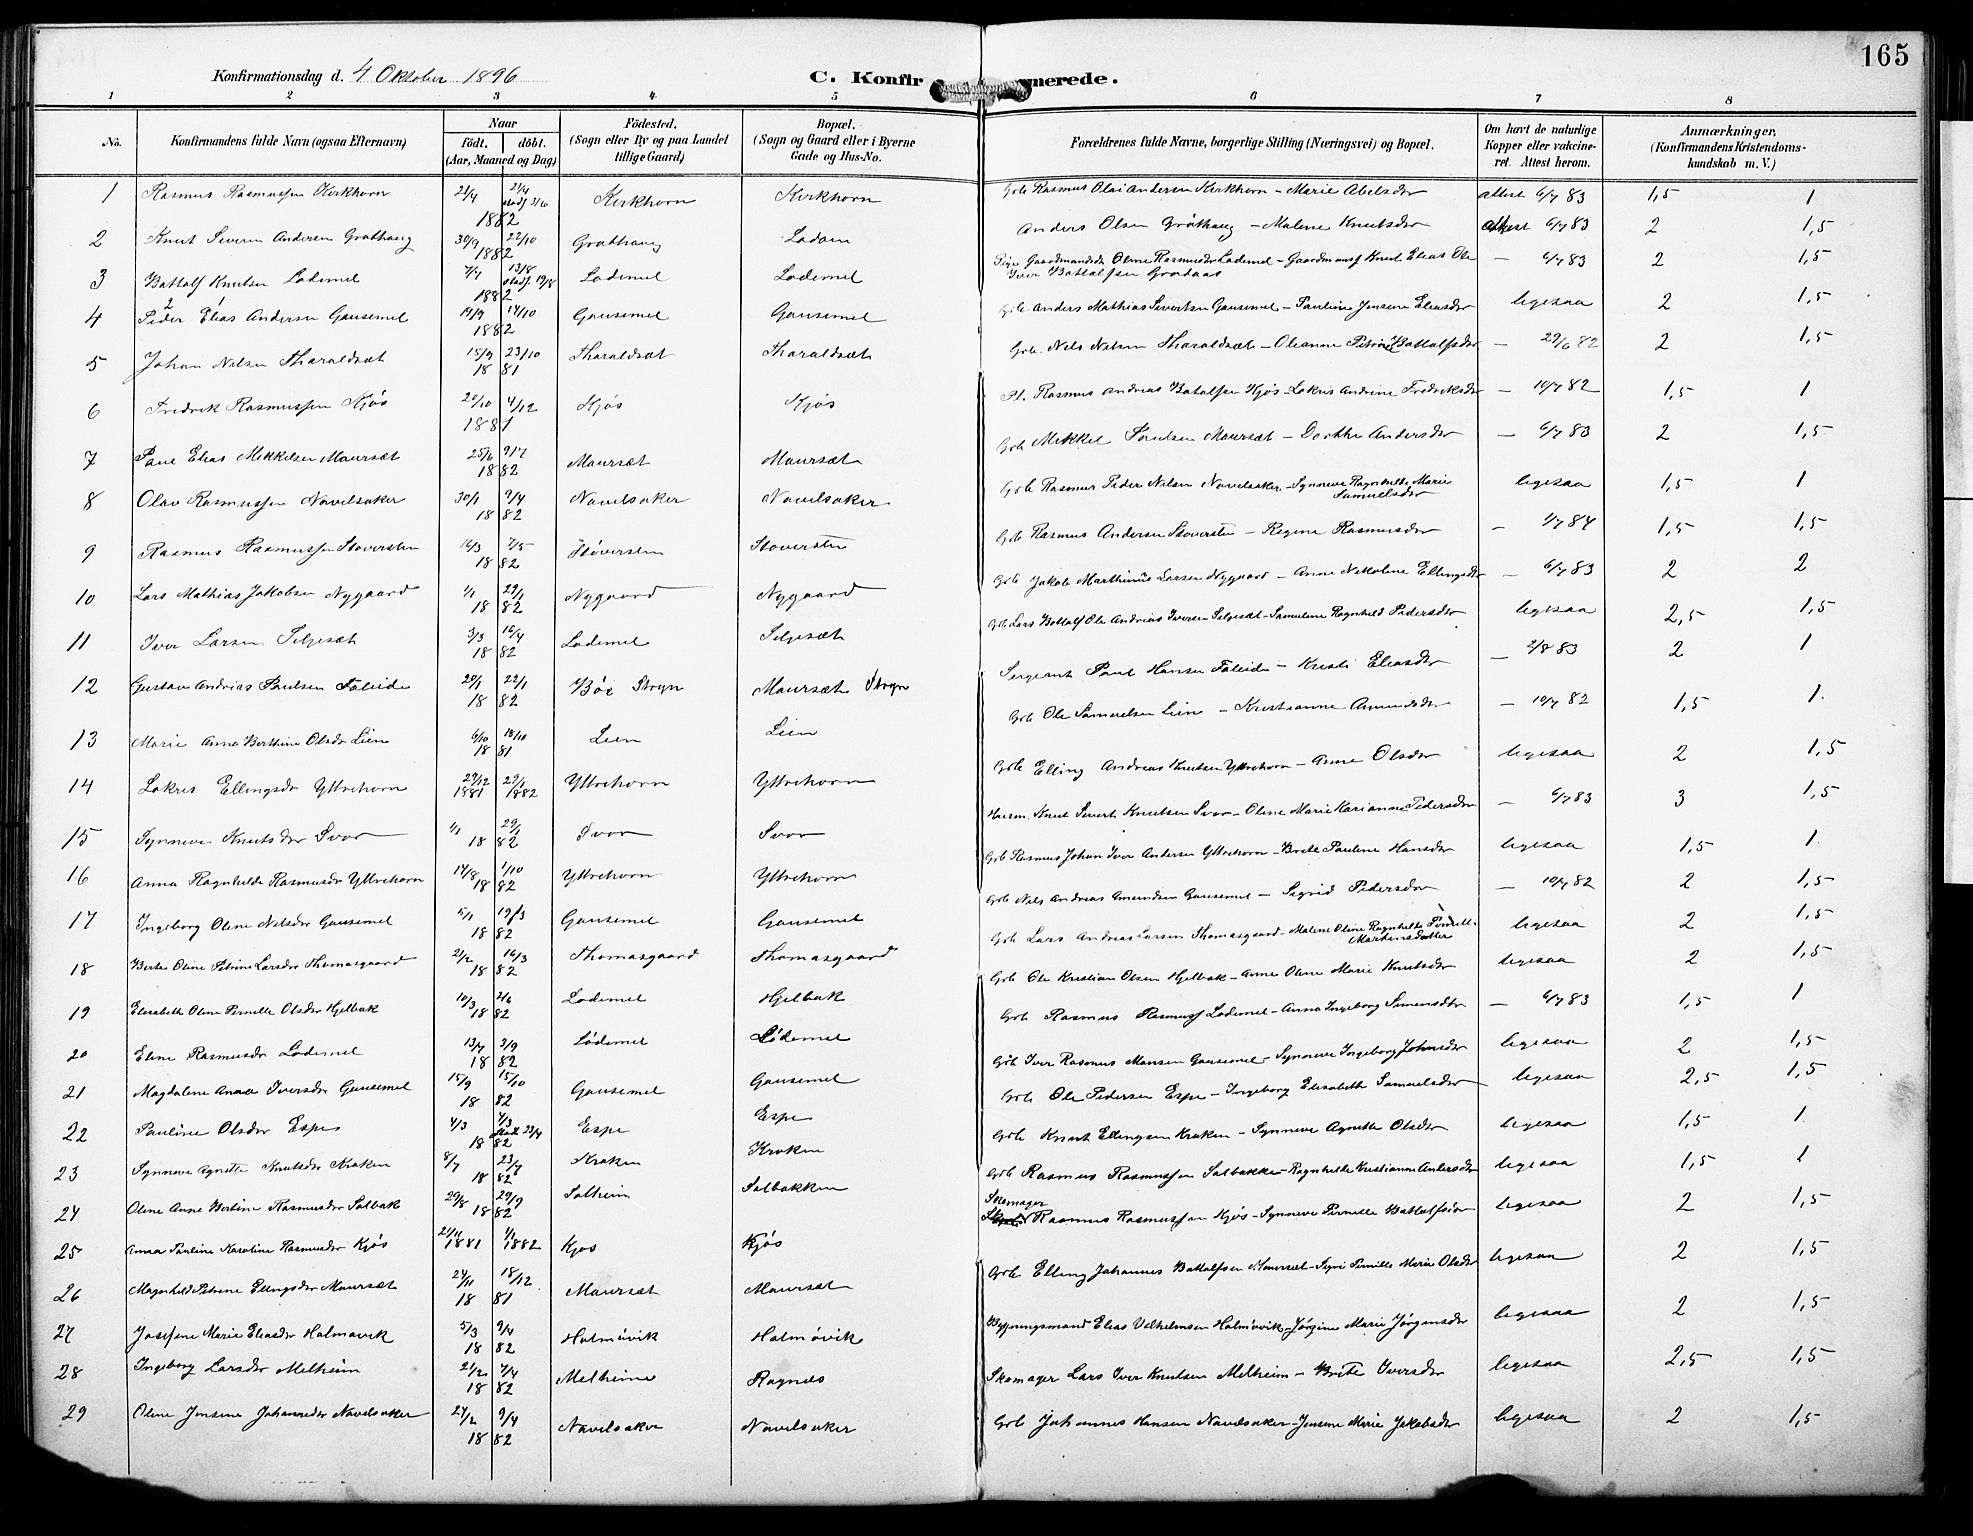 165
Konfirmationsdag d. 4 Oktober 1896 C. Konfir merede.
1 2 3 4 5 6 7 8
No. Konfirmandens fulde Navn (ogsaa Efternavn) Naar født. døbt. (Aar, Maaned og Dag) Fødested. (Sogn eller By og paa Landet tillige Gaard) Bopæl. (Sogn og Gaard eller i Byerne Gade og Hus-No. Forældrenes fulde Navne, borgerlige Stilling (Næringsvei) og Bopæl. Om havt de naturlige Kopper eller vakcineret. Attest herom. Anmærkninger, (Konfirmandens Kristendomskundskab m. V.)
1 Rasmus Rasmussen Kirkhorn 21/4 1882 Kirkhorn Kirkhorn Grb Rasmus Olai Andersen Kirkhorn - Marie Abelsdr attest 6/7 83 1,5 1
2 Knut Severin Andersen Grøthaug 30/9 22/10 1882 Grøthaug Lødøen Anders Olsen Grøthaug - Malene Knutsdr attest 6/7 83 2 1,5
3 Battolf Knutsen Lødemel 7/7 13/8 stadf. 19/8 1882 Lødemel Lødemel Pige Gaardmandsdr Oline Rasmusdr Lødemel - Gaardmands Knut Elias Ole Iver Battolfsen Grodaas — 6/7 83 2 1,5
4 Peder Elias Andersen Gausemel 19/9 14/10 1882 Gausemel Gausemel Grb Anders Mathias Sivertsen Gausemel - Pauline Jensine Eliasdr ligesaa 2 1,5
5 Johan Nilsen Tharaldsæt 15/9 23/10 1881 Tharaldsæt Tharaldsæt Grb. Nils Nilsen Tharaldsæt - Oleanne Petrine Battolfsdr — 29/6 82 2 1,5
6 Fredrik Rasmussen Kjøs 20/10 4/12 1881 Kjøs Kjøs Pl. Rasmus Andreas Batolfsen Kjøs - Lokris Andrine Fredriksdr — 10/7 82 1,5 1
7 Paul Elias Mikkelsen Maursæt 25/6 9/7 1882 Maursæt Maursæt Grb Mikkel Paulsen Maursæt - Dorthe Andersdr — 6/7 83 2 1,5
8 Olav Rasmussen Navelsaker 30/1 9/4 1882 Navelsaker Navelsaker Grb Rasmus Peder Nilsen Navelsaker - Synneve Ragnhilde Marie Samuelsdr ligesaa 1,5 1
9 Rasmus Rasmussen Støversten 16/3 7/5 1882 Støversten Støversten Grb Rasmus Andersen Støversten - Regine Rasmusdr — 1/7 84 1,5 1,5
10 Lars Mathias Jakobsen Nygaard 1/1 29/1 1882 Nygaard Nygaard Grb Jakob Marthinus Larsen Nygaard - Anne Nikoline Ellingsdr — 6/7 83 2 2
11 Iver Larsen Seljesæt 3/3 16/4 1882 Lødemel Seljesæt Grb Lars Battolf Ole Andrias Iversen Seljesæt - Samueline Ragnhild Pedersdr ligesaa 2,5 1,5
12 Gustav Andrias Paulsen Faleide 20/1 22/1 1882 Bøe Stryn Maursæt Stryn Sergeant Paul Hansen Faleide - Kristi Eliasdr — 2/8 83 2 1
13 Marie Anne Berthine Olsdr Lien 6/10 16/10 1881 Lien Lien Grb Ole Samuelsen Lien - Kristianne Amundsdr — 10/7 82 1,5 1.
14 Lokris Ellingsdr Yttrehorn 29/12 1881 29/1 1882 Yttrehorn Yttrehorn Grb Elling Andreas Knutsen Yttrehorn - Anne Olsdr ligesaa 2 1,5
15 Synneve Knutsdr Svor 1/1 29/1 1882 Svor Svor Husm. Knut Sivert Knutsen Svor - Oline Marie Karianne Pedersdr — 6/7 83 3 1,5
16 Anna Ragnhilde Rasmusdr Yttrehorn 14/8 1/10 1882 Yttrehorn Yttrehorn Grb Rasmus Johan Iver Andersen Yttrehorn - Brite Pauline Hansdr ligesaa 1,5 1
17 Ingeborg Oline Nilsdr Gausemel 5/1 19/3 1882 Gausemel Gausemel Grb Nils Andreas Amundsen Gausemel - Sigrid Pedersdr — 10/7 82 2 1,5
18 Berte Oline Petrine Larsdr Thomasgaard 2/2 16/3 1882 Thomasgaard Thomasgaard Grb Lars Andreas Larsen Thomasgaard - Malene Oline Ragnhilde Pernille Martensdatter ligesaa 2 1,5
19 Elisabeth Oline Pernille Olsdr Hjelbak 10/3 2/6 1882 Lødemel Hjelbak Grb Ole Kristian Olsen Hjelbak - Anne Oline Marie Knutsdr ligesaa 2 1,5
20 Eline Rasmusdr Lødemel 13/7 3/9 1882 Lødemel Lødemel Grb Rasmus Rasmuss Lødemel - Anna Ingeborg Simensdr — 6/7 83 1,5 1
21 Magdalene Anna Iversdr Gausemel 15/9 15/10 1882 Gausemel Gausemel Grb Iver Rasmus Monsen Gausemel - Synneve Ingeborg Johnsdr ligesaa 2 1,5
22 Pauline Olsdr Espe 4/3 1882 Espe Espe Grb Ole Pedersen Espe - Ingeborg Elisabeth Samuelsdr ligesaa 2,5 1,5
23 Synneve Agnette Knutsdr Kroken 8/7 23/7 1882 Kroken Kroken Grb Knut Ellingsen Kroken - Synneve Agnette Olsdr ligesaa 1,5 1
24 Oline Anne Bertine Rasmusdr Solbak 29/8 1882 Solheim Solbakken Grb Rasmus Rasmussen Solbakke - Ragnhilde Kristianne Andersdr ligesaa 1,5 1
25 Anna Pauline Karoline Rasmusdr Kjøs 24/11 1881 1/1 1882 Kjøs Kjøs Skomager Rasmus Rasmussen Kjøs - Synneve Pernille Battolfsdr ligesaa 2 1,5
26 Magnhild Petrine Ellingsdr Maursæt 24/11 18/12 1881 Maursæt Maursæt Grb Elling Johannes Battolfsen Maursæt - Siri Pernille Marie Olsdr ligesaa 2 1,5
27 Josefine Marie Eliasdr Holmøvik 5/3 9/4 1882 Holmøvik Holmøvik Bygningsmand Elias Vilhelmsen Holmøvik - Jørgine Marie Jørgensdr ligesaa 2 1,5
28 Ingeborg Larsdr Melheim 21/2 7/4 1882 Melheim Ragnes Skomager Lars Iver Knutsen Melheim - Brite Iversdr ligesaa 2,5 1,5
29 Oline Jensine Johannesdr Navelsaker 27/2 9/4 1882 Navelsaker Navelsaker Grb Johannes Hansen Navelsaker - Jensine Marie Jakobsdr ligesaa 2 1,5